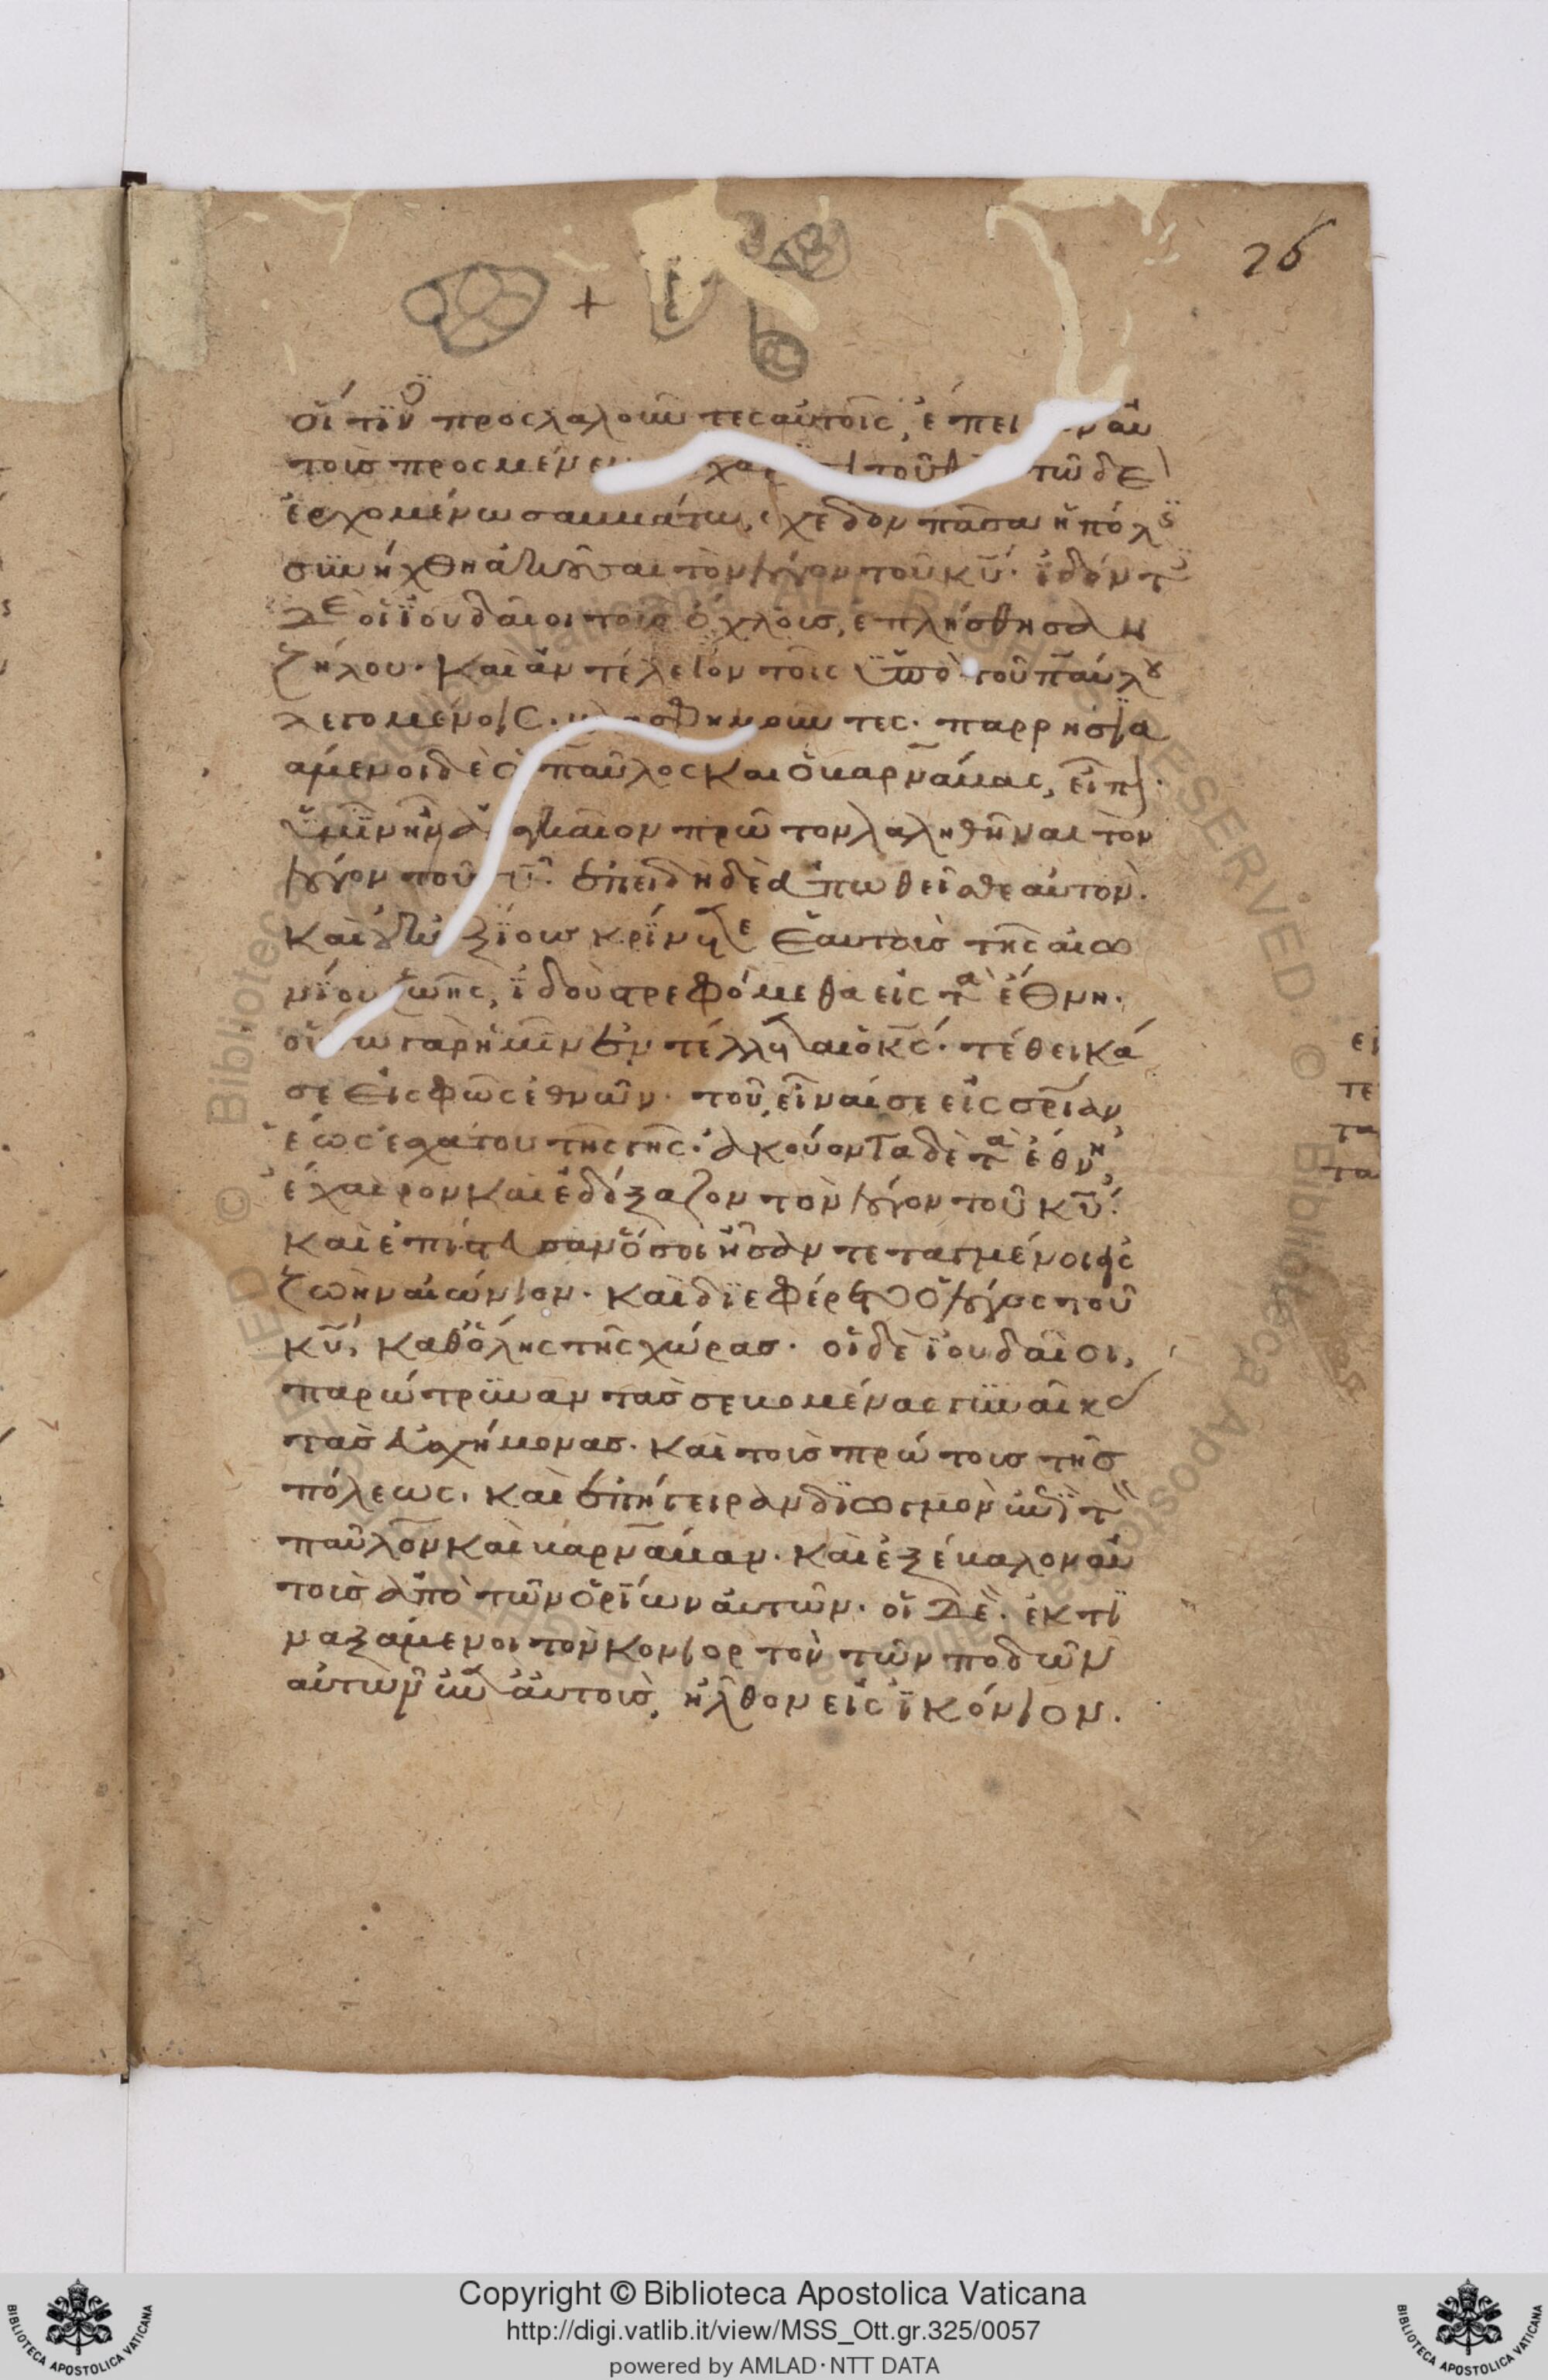 26
οἵτινες προσλαλοῦντες αὐτοῖς, ἔπει αὐ
τοὺς προσμένειν τοῦ τῶ δὲ
ἐρχομένω σαββάτω, σχεδὸν πᾶσα ἡ πόλις
συνήχθη ἀκοῦσαι τὸν λόγον τοῦ κ̅υ̅. ἰδόντες
δὲ οἱ ἰουδαῖοι τοὺς ὄχλους, ἐπλήσθησαν
ζήλου. καὶ ἀντέλεγον τοῖς ὑπὸ τοῦ παύλου
λεγομένοις. τες. παρρησια
άμενοι δὲ ὁ παῦλος καὶ ὁ βαρνάβας, εἶπον.
ὑμῖν ἦν ἀναγκαῖον πρῶτον λαληθῆναι τὸν
λόγον τοῦ θ̅υ̅. ἐπειδὴ δὲ ἀπωθεῖσθε αὐτὸν.
καὶ οὐκ ἀξίους κρίνετε ἑαυτοὺς τῆς αἰω
νίου ζωῆς, ἰδοὺ στρεφόμεθα εἰς τὰ ἔθνη.
οὕτω γὰρ ἡμῖν ἐντέλλεται ὁ κ̅ς̅. τέθεικά
σε εἰς φῶς ἐθνῶν. τοῦ εἶναί σε εἰς σ̅ρ̅ίαν
ἕως ἐσχάτου τῆς γῆς. ἀκούοντα δὲ τὰ ἔθνη,
ἔχαιρον καὶ ἐδόξαζον τὸν λόγον τοῦ κ̅υ̅.
καὶ ἐπίστευσαν ὅσοι ἦσαν τεταγμένοι εἰς
ζωὴν αἰώνιον. καὶ διεφέρετο ὁ λόγος τοῦ
κ̅υ̅, καθ' ὅλης τῆς χώρας. οἱ δὲ ἰουδαῖοι,
παρώτρυναν τὰς σεβομένας γυναῖκας
τὰς εὐσχήμονας. καὶ τοὺς πρώτους τῆς
πόλεως. καὶ ἐπήγειραν διωγμὸν ἐπὶ τὸν
παῦλον καὶ βαρνάβαν. καὶ ἐξέβαλον αὐ
τοὺς ἀπὸ τῶν ὁρίων αὐτῶν. οἱ δὲ. ἐκτι
ναξάμενοι τὸν κονιορτὸν τῶν ποδῶν
αὐτῶν ἐπ' αὐτοὺς, ἦλθον εἰς ἰκόνιον.
Copyright © Biblioteca Apostolica Vaticana
http://digi.vatlib.it/view/MSS_Ott.gr.325/0057
powered by AMLAD·NTT DATA